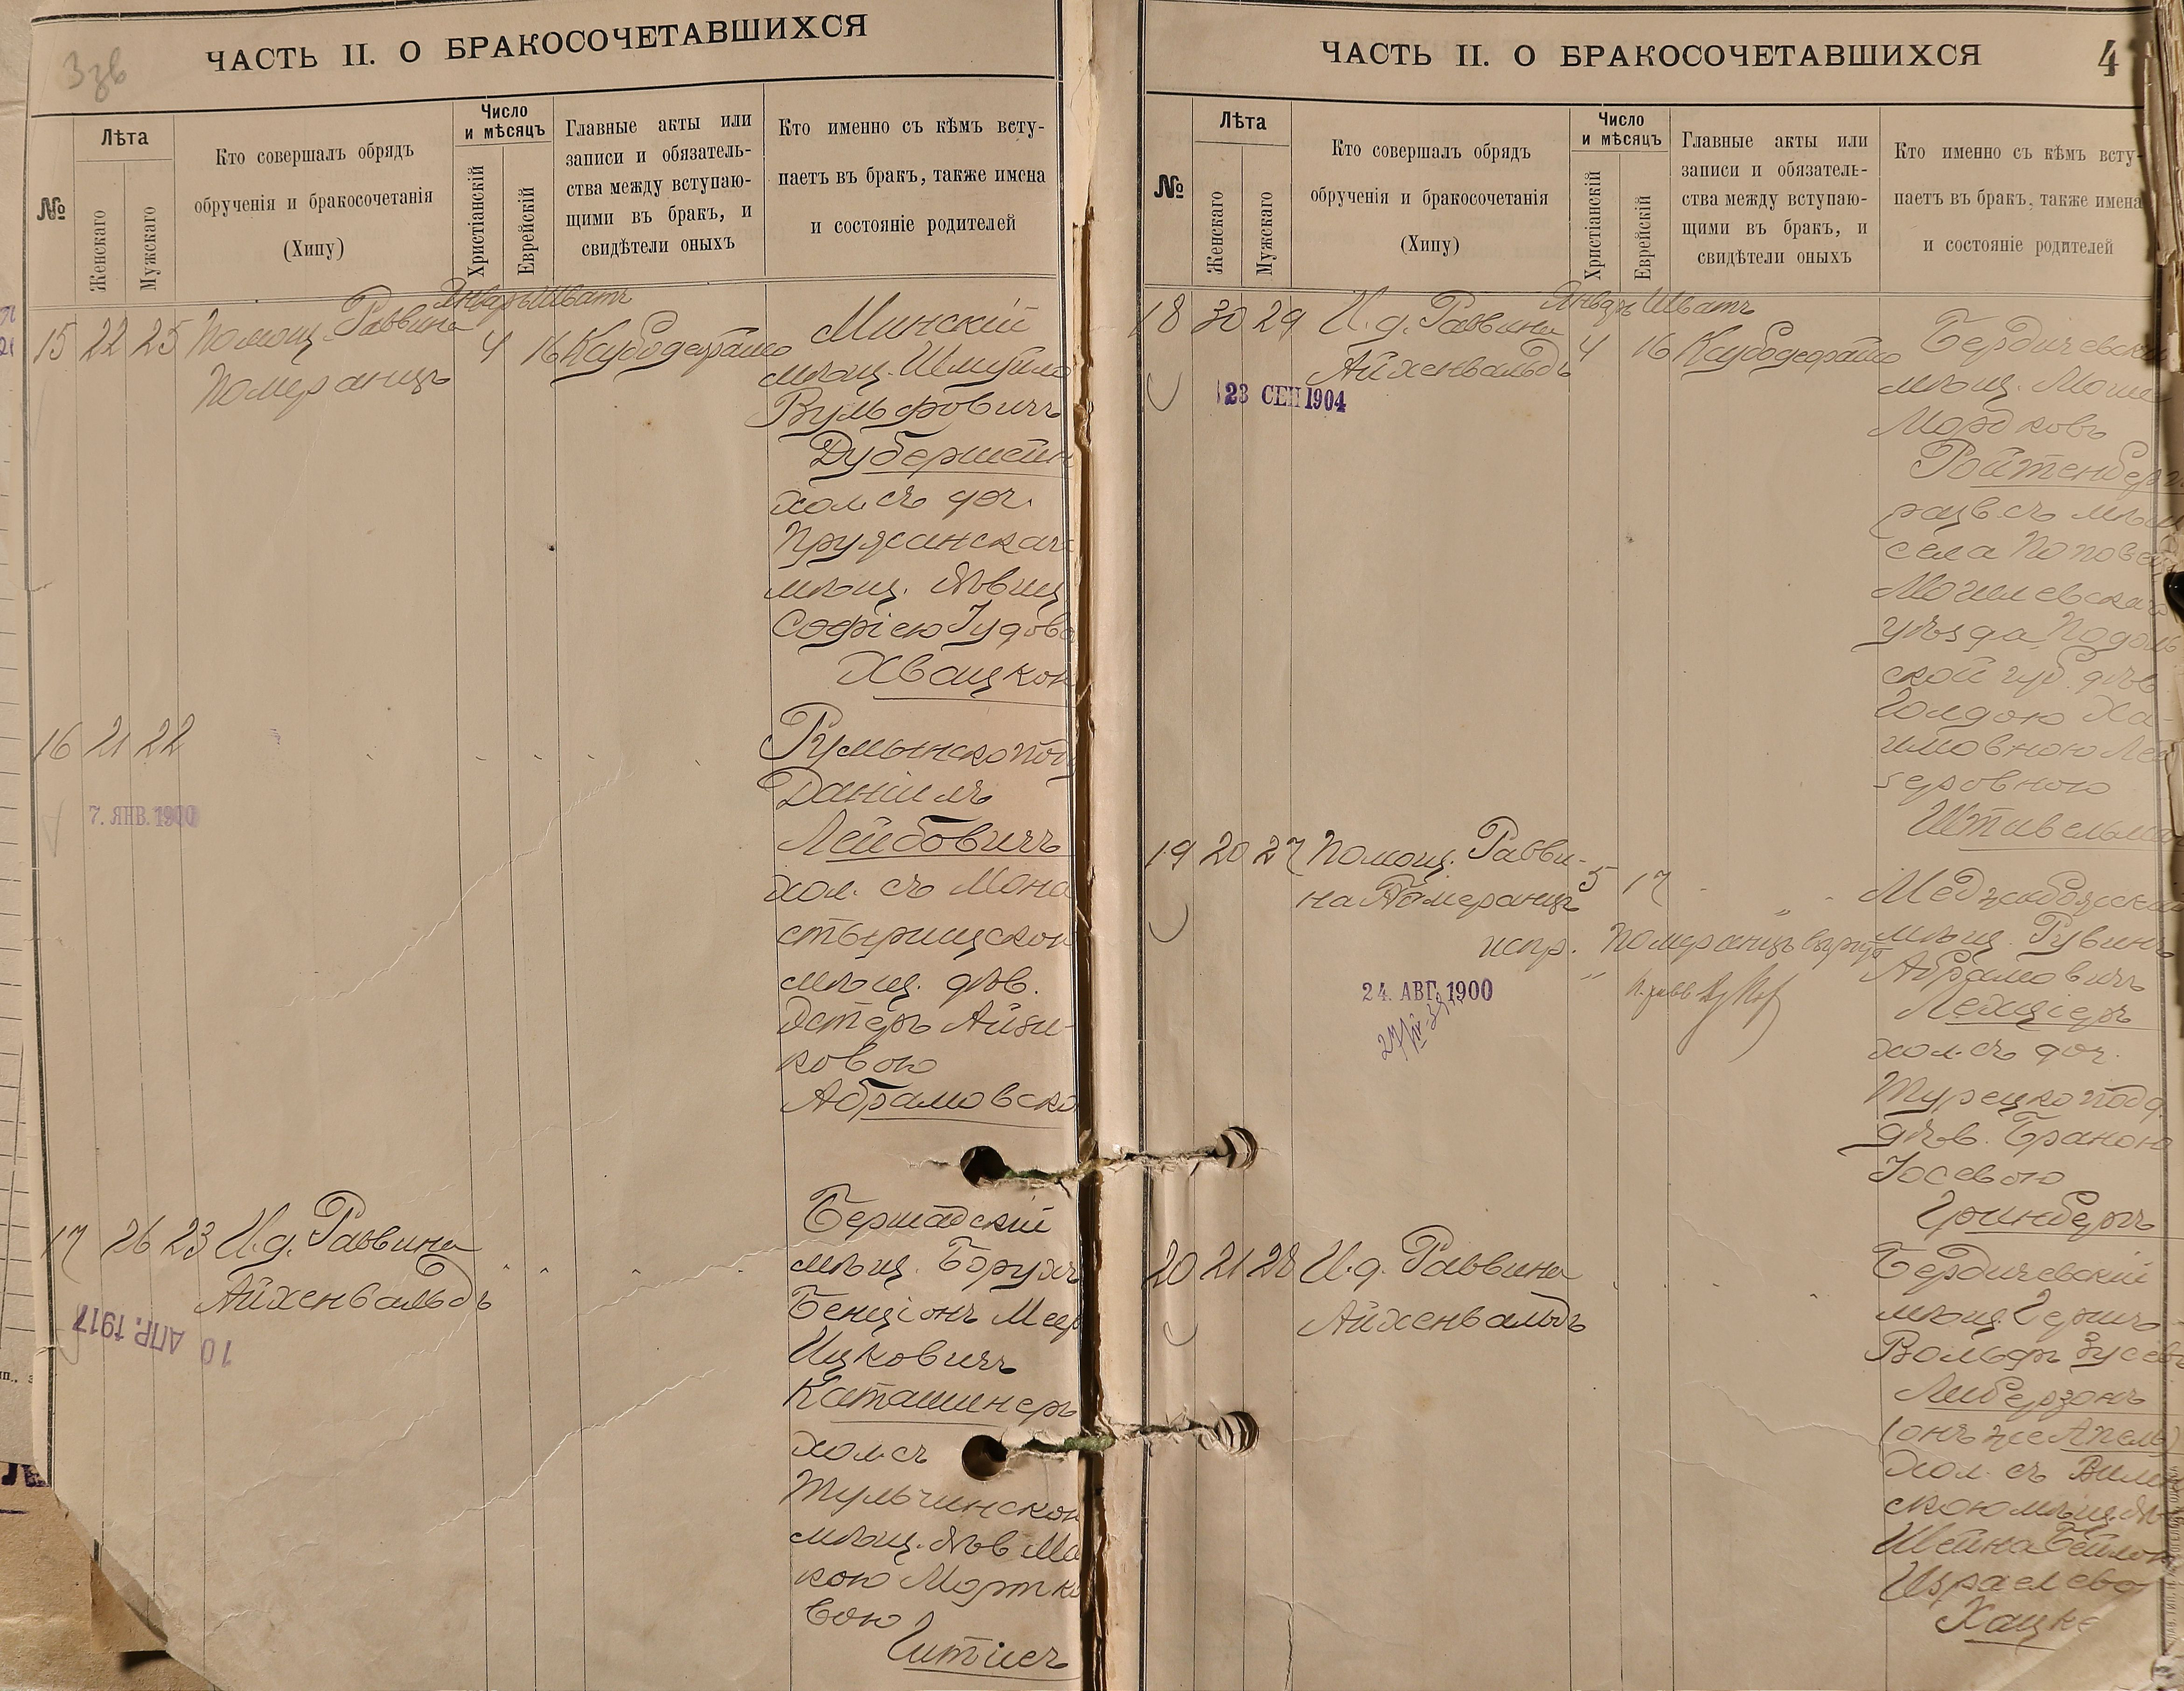 Ззв
ЧАСТЬ II. О БРАКОСОЧЕТАВШИХСЯ
№
Лѣта
Женскаго
Мужскаго
Кто совершалъ обрядъ
обрученія и бракосочетанія
(Хипу)
Число
и мѣсяцъ
Христіанскій
Еврейскій
Главные акты или
записи и обязатель-
ства между вступаю-
щими въ бракъ, и
свидѣтели оныхъ
Кто именно съ кѣмъ всту-
паетъ въ бракъ, также имена
и состояніе родителей
Январь Шватъ
15 22 25 Помощ. Раввина 4 16
Померанцъ
Минскій
мѣщ. Шмуйло
Вульфовичъ
Дубершейн
хол. съ доч.
Пружанскаго
мѣщ. дѣвиц
Софіею Іудово
Хвацкой
16 21 22
7. ЯНВ. 1900
Румынскопод
Даніилъ
Лейбовичъ
хол. съ Мона
стырищской
мѣщ. дѣв.
Эстеръ Айзи-
ковою
Абрамовско
17 26 23 И.д. Раввина
Айхенвальдъ
10 АПР. 1917
Бершадскій
мѣщ. Борухъ
Бенціонъ Меер
Ицковичъ
Каташинеръ
хол. съ
Тульчинскою
мѣщ. дѣв Ма
кою Мортко
вою
Гитисъ
ЧАСТЬ II. О БРАКОСОЧЕТАВШИХСЯ
4
№
Лѣта
Женскаго
Мужскаго
Кто совершалъ обрядъ
обрученія и бракосочетанія
(Хипу)
Число
и мѣсяцъ
Христіанскій
Еврейскій
Главные акты или
записи и обязатель-
ства между вступаю-
щими въ бракъ, и
свидѣтели оныхъ
Кто именно съ кѣмъ всту-
паетъ въ бракъ, также имена
и состояніе родителей
Январь Шватъ
18 30 29 И.д. Раввина 4 16
Айхенвальдъ
23 СЕН 1904
Бердичевскі
мѣщ. Моше
Мордковъ
Ройтенберг
разв. съ мѣщ
села Поповой
Могилевскаго
уѣзда, Подоль
ской губ. дѣв
Голдою Ха-
имовною Лей
зеровною
Штивельма
19 20 27 Помощ. Равви- 5 17
на Померанцъ
испр. Померанцъ
24. АВГ. 1900
Меджибожскій
мѣщ. Рувинъ
Абрамовичъ
Лехціеръ
хол. съ доч.
Турецкопод
дѣв. Браною
Іосевою
Гринбергъ
20 21 28 И.д. Раввина
Айхенвальдъ
Бердичевскій
мѣщ. Гершъ-
Вольфъ Зусев
Либерзонъ
(онъ же Апель)
хол. съ Вилен
скою мѣщ. дѣв
Шейна Бейлою
Израелево
Хацке